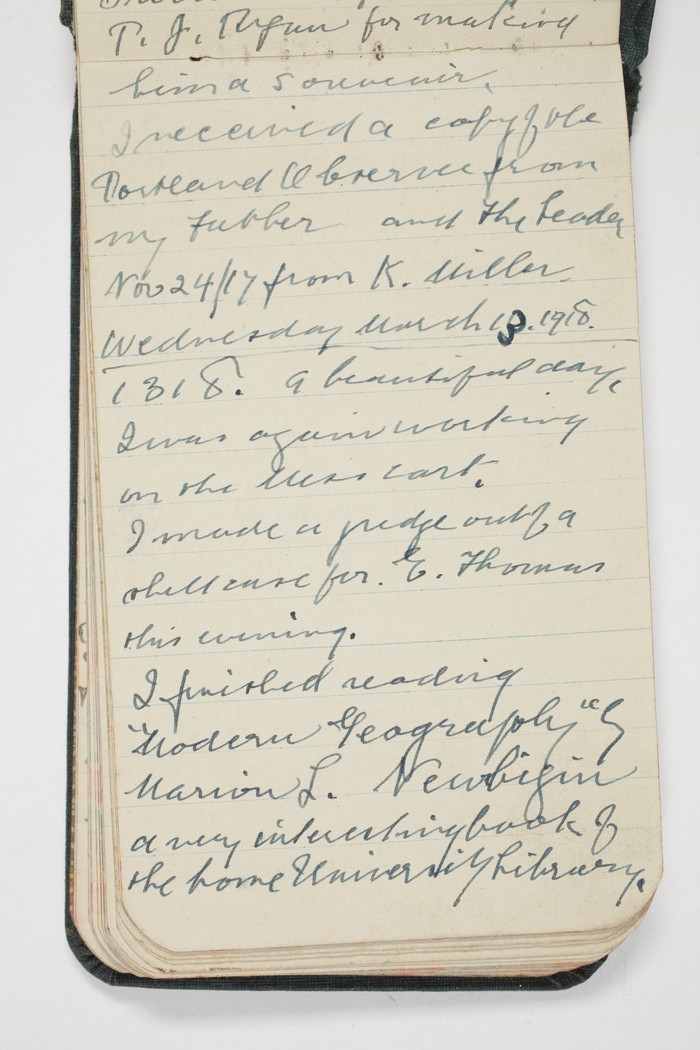 T. J. Ryan for making
him a souvenir.
I received a copy of the
Portland Observer from
my father and the Leader
Nov 24/17 from K. Miller.
Wednesday March 13. 1918.
1318. A beautiful day.
I was again working
on the Mess cart.
I made a gudge out of a
shell case for. E. Thomas
this evening.
I finished reading
"Modern Geography" by
Marion I. Newbigin
a very interesting book of
the home University Library.